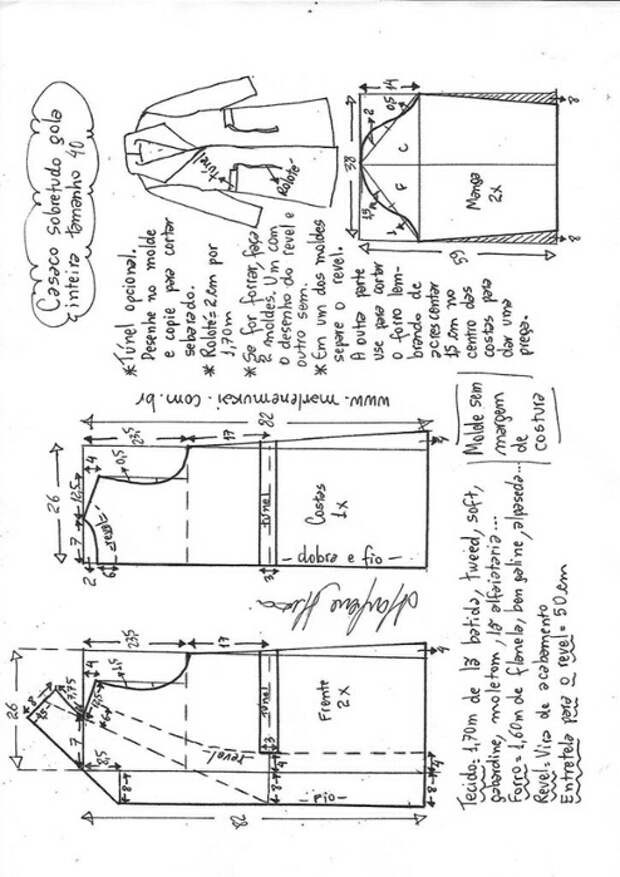 Casaco sobretudo gola
inteira tamanho 40
*Túnel opcional.
Desenhe no molde
e copie para cortar
separado.
* Roloté = 2cm por
1,70m
*Se for forrar, faça
2 moldes. Um com
o desenho do revel e
outro sem.
*Em um dos moldes
separe o revel.
A outra parte
use para cortar
o forro lem-
brando de
acrescentar
15 cm no
centro das
costas para
dar uma
prega.
túnel
Roloté
14
38
2
0,5
C
F
1,5
1
Manga
2x
59
8
8
www.marlenemukai.com.br
26
7
12,5
4
23,5
17
82
0,5
2
6
revel
túnel
3
Costas
1x
- fio e dobra -
4
Molde sem
margem
de
costura
26
8
7,75
7
4
23,5
17
1,5
6
8,5
8
revel
túnel
3
4
Frente
2x
- fio -
8
4
4
82
Tecido: 1,70m de lã batida, tweed, soft,
gabardine, moletom, lã alfaiataria...
Forro = 1,60m de flanela, bengaline, alpaseda...
Revel = Vira de acabamento
Entretela para o revel = 50cm